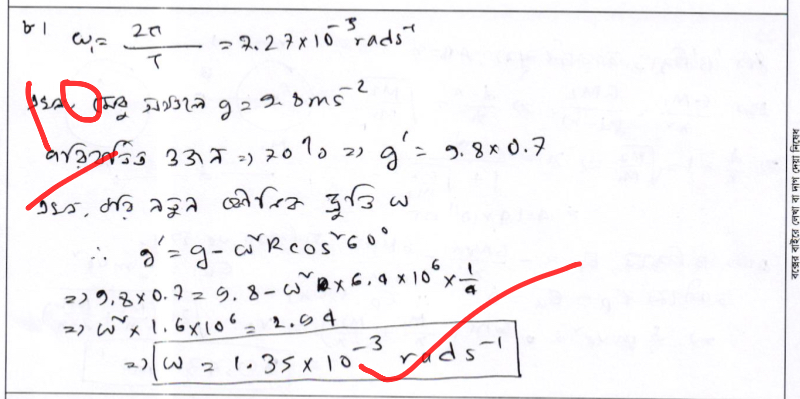 ৮।
ω₁ = 2π/T = 7.27×10⁻³ rads⁻¹
এখন, মেরু অঞ্চলে g = 9.8ms⁻²
পরিবর্তিত ওজন ⇒ 70% ⇒ g' = 9.8×0.7
এখন, ধরি নতুন কৌণিক দ্রুতি ω
∴ g' = g - ω²Rcos²60°
⇒ 9.8×0.7 = 9.8 - ω² × 6.4×10⁶×1/4
⇒ ω² × 1.6×10⁶ = 2.94
⇒ ω = 1.35×10⁻³ rads⁻¹
বক্সের বাইরে লেখা বা দাগ দেয়া নিষেধ